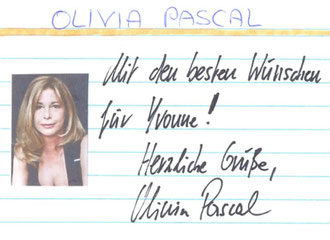 OLIVIA PASCAL
Mit den besten Wünschen
für Yvonne!
Herzliche Grüße,
Olivia Pascal